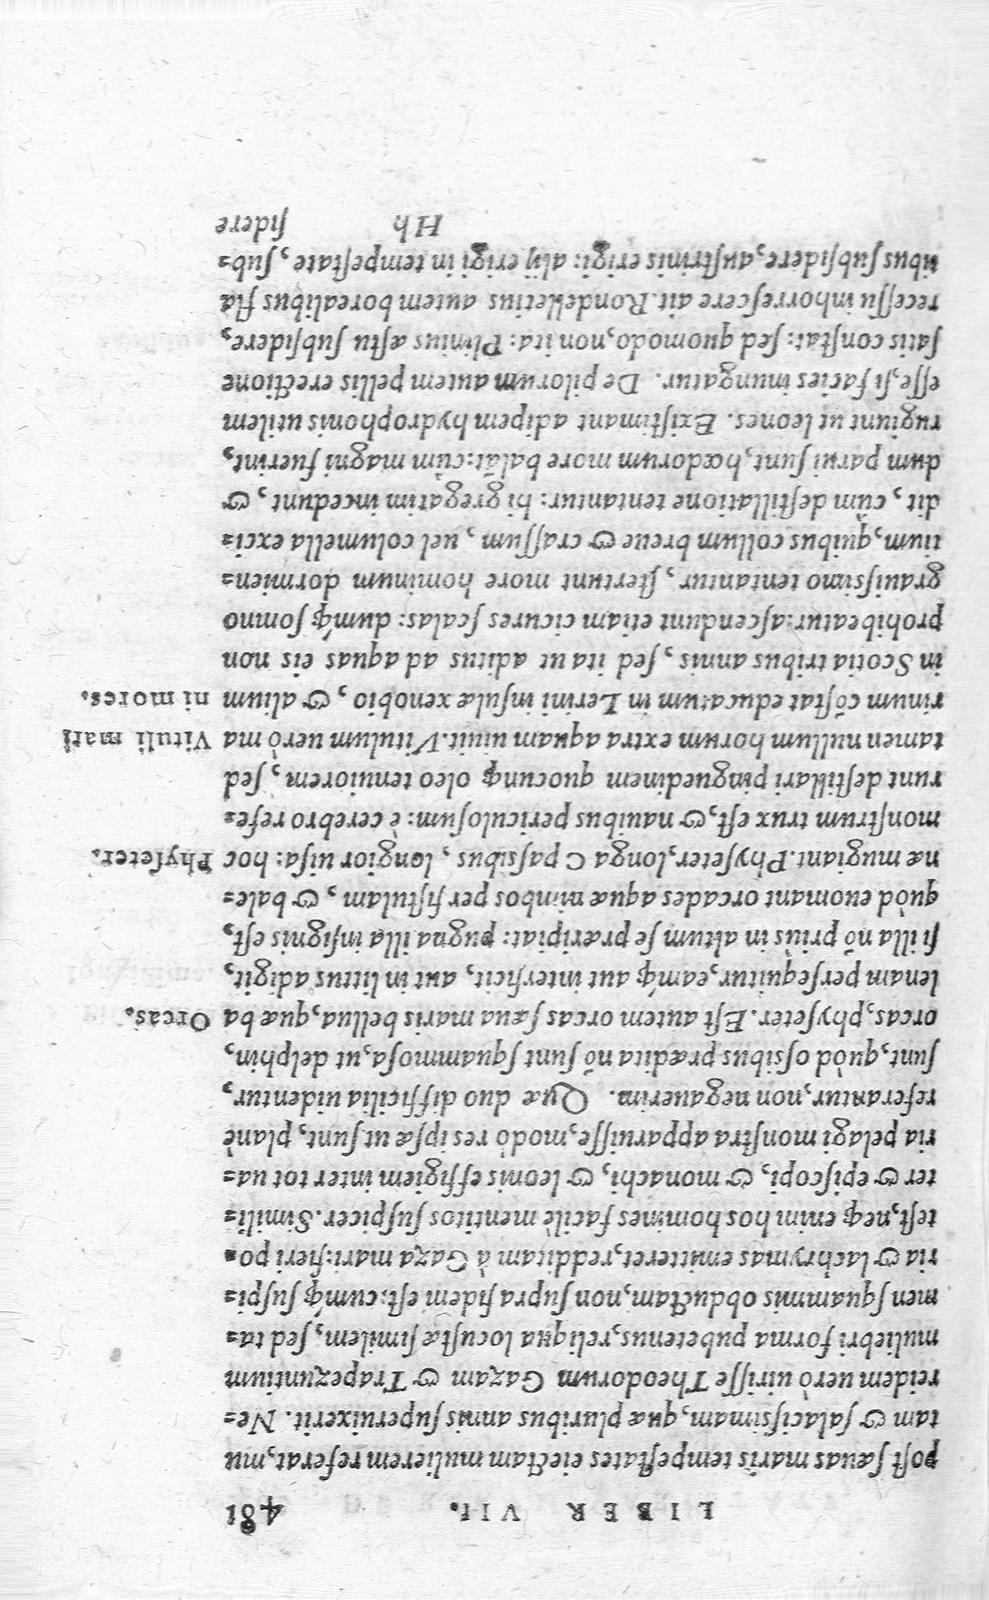 LIBER VII. 481
post sæuas maris tempestates eiectam mulierem referat, mu
tam & salacissimam, quæ pluribus annis superuixerit. Ne=
reidem uerò uixisse Theodorum Gazam & Trapezuntium
muliebri forma pubetenus, reliqua locustæ similem, sed ta=
men squammis obductam, non supra fidem est: cumq́; suspi=
ria & lachrymas emitteret, redditam à Gaza mari: fieri po=
test, neq; enim hos homines facilè mentitos suspicer. Simili=
ter & episcopi, & monachi, & leonis effigiem inter tot ua=
ria pelagi monstra apparuisse, modò res ipsæ ut sunt, planè
referantur, non negauerim. Quæ duo difficilia uidentur,
sunt, quòd ossibus prædita nō sunt squammosa, ut delphin,
orcas, physeter. Est autem orcas sæua maris bellua, quæ ba
Orcas.
lenam persequitur, eamq́; aut interficit, aut in littus adigit,
si illa nō prius in altum se præripiat: pugna illa insignis est,
quòd euomant orcades aquæ nimbos per fistulam, & bale=
næ mugiant. Physeter, longa C passibus, longior uisa: hoc
Physeter.
monstrum trux est, & nauibus periculosum: è cerebro refe=
runt destillari pinguedinem quocunq; oleo tenuiorem, sed
tamen nullum horum extra aquam uiuit. Vitulum uerò ma
Vituli mari
rinum cōstat educatum in Lerini insulæ xenobio, & alium
ni mores.
in Scotia tribus annis, sed ita ut aditus ad aquas eis non
prohibeatur: ascendunt etiam cicures scalas: dumq́; somno
grauissimo tentantur, stertunt more hominum dormien=
tium, quibus collum breue & crassum, uel columella exci=
dit, cùm destillatione tentantur: hi gregatim incedunt, &
dum parui sunt, hœdorum more balāt: cùm magni fuerint,
rugiunt ut leones. Existimant adipem hydrophobis utilem
esse, si facies inungatur. De pilorum autem pellis erectione
satis constat: sed quomodo, non ita: Plinius æstu subsidere,
recessu inhorrescere ait. Rondelletius autem borealibus fla
tibus subsidere, austrinis erigi: alij erigi in tempestate, sub=
Hh sidere